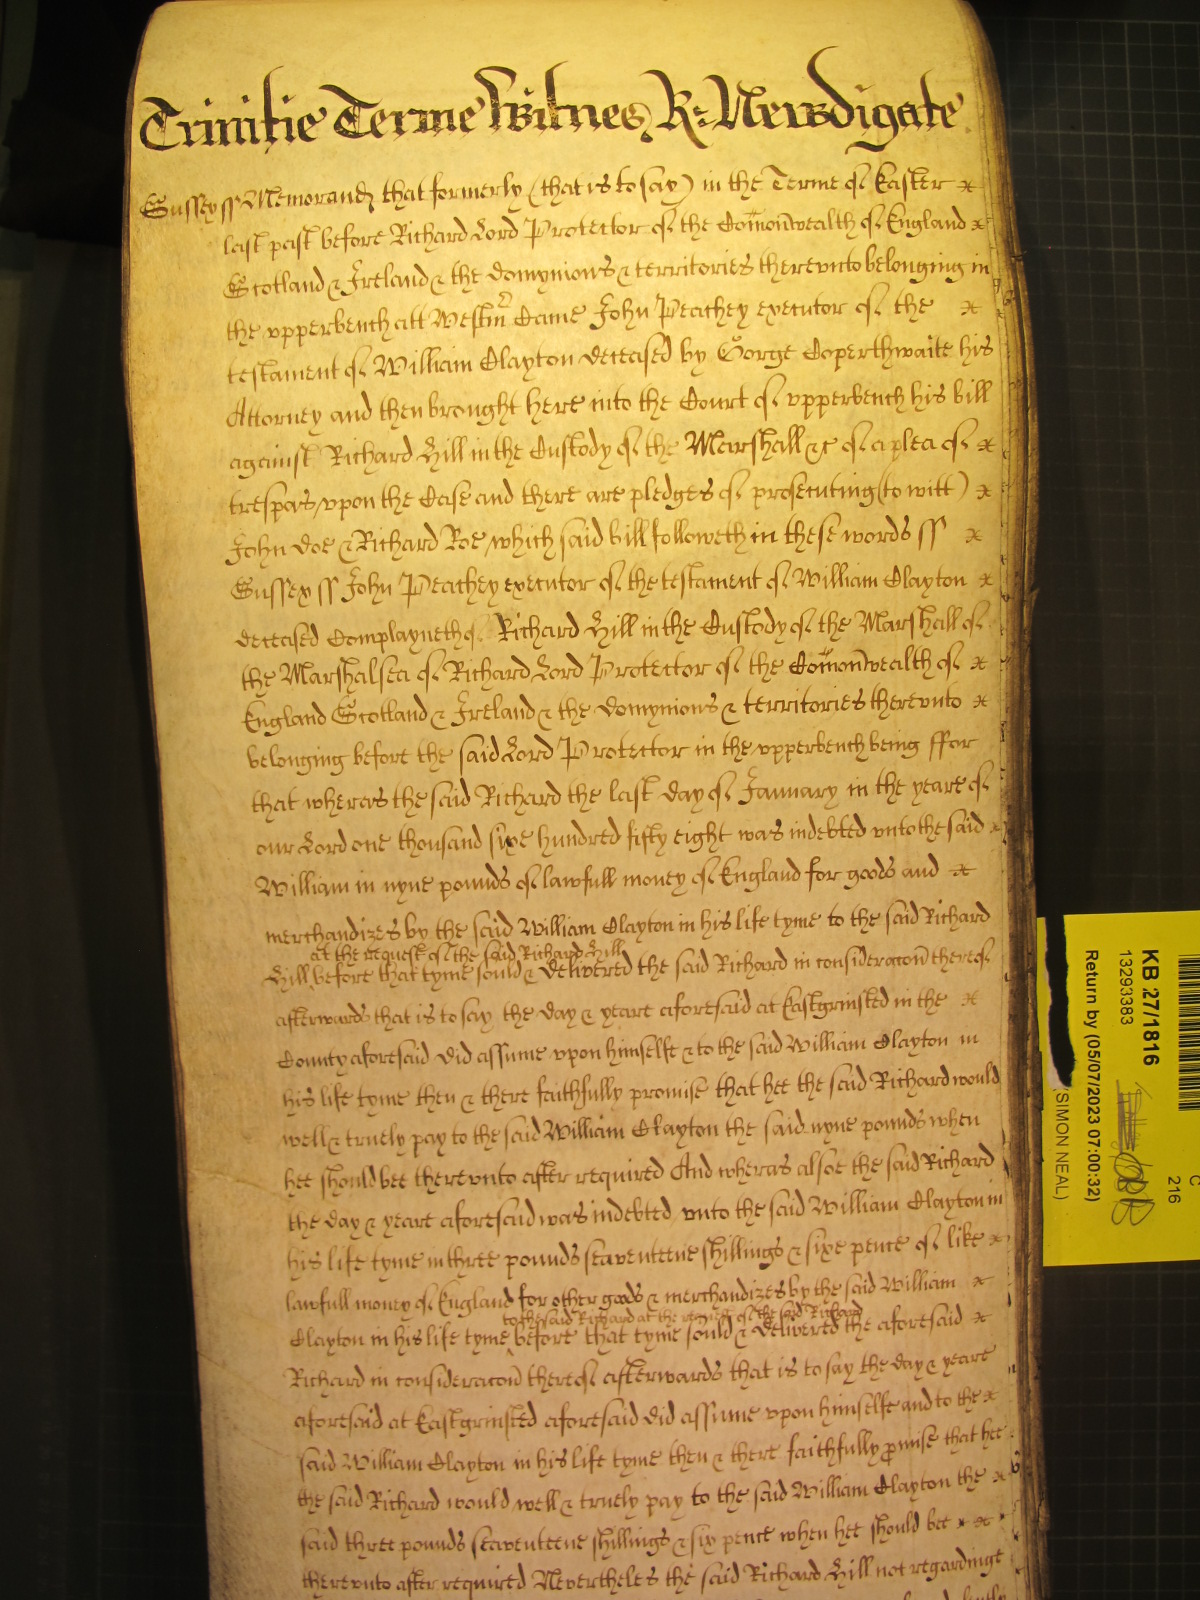 Trinitie Terme Witnes R: Newdigate
Sussex ss Memorand that formerly (that is to say) in the Terme of Easter
last past before Richard Lord Protector of the Comonwealth of England
Scotland & Ireland & the domynions & territories therevnto belonging in
the vpperbench att Westm Came John Peachey executor of the
testament of William Clayton deceased by George Coperthwaite his
Attorney and then brought here into the Court of vpperbench his bill
against Richard Hill in the Custody of the Marshall &c of a plea of
trespas vpon the Case and there are pledges of prosecuting (to witt)
John Doe & Richard Roe which said bill followeth in these words ss
Sussex ss John Peachey executor of the testament of William Clayton
deceased Complayneth of Richard Hill in the Custody of the Marshall of
the Marshalsea of Richard Lord Protector of the Comonwealth of
England Scotland & Ireland & the domynions & territories therevnto
belonging before the said Lord Protector in the vpperbench being ffor
that wheras the said Richard the last day of January in the yeare of
our Lord one thousand sixe hundred fifty eight was indebted vnto the said
William in nyne pounds of lawfull money of England for goods and
merchandizes by the said William Clayton in his life tyme to the said Richard
at the request of the said Richard Hill
Hill before that tyme sould & delivered the said Richard in consideracon thereof
afterwards that is to say the day & yeare aforesaid at Eastgrinsted in the
County aforesaid did assume vpon himselfe & to the said William Clayton in
his life tyme then & there faithfully promise that hee the said Richard would
well & truely pay to the said William Clayton the said nyne pounds when
hee should bee therevnto after required And wheras alsoe the said Richard
the day & yeare aforesaid was indebted vnto the said William Clayton in
his life tyme in three pounds seaventeene shillings & sixe pence of like
lawfull money of England for other goods & merchandizes by the said William
to the said Richard at the request of the said Richard
Clayton in his life tyme before that tyme sould & delivered the aforesaid
Richard in consideracon thereof afterwards that is to say the day & yeare
aforesaid at Eastgrinsted aforesaid did assume vpon himselfe and to the
said William Clayton in his life tyme then & there faithfully pmise that hee
the said Richard would well & truely pay to the said William Clayton the
said three pounds seaventeene shillings & six pence when hee should bee
therevnto after required Neverthelès the said Richard Hill not regardinge
KB 27/1816
13293383
Return by (05/07/2023 07:00:32)
(SIMON NEAL)
C
216